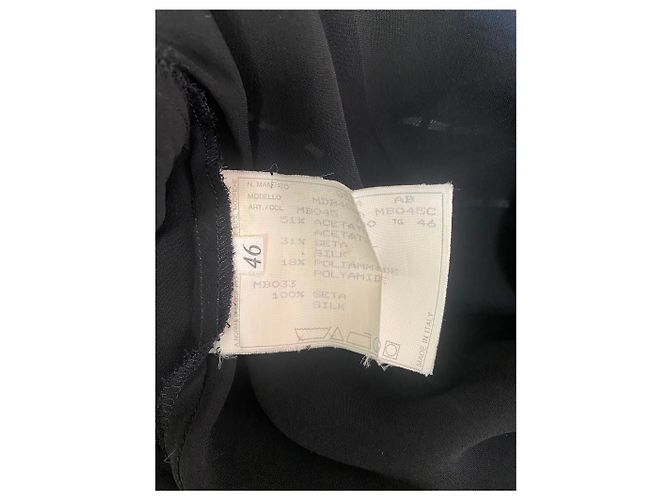 N. MANIFSTO
MODELLO AB
ART./COL. MB045 MB045C
51% ACETATO TG 46
ACETATE
31% SETA
SILK
18% POLIAMMIDE
POLYAMIDE
MB033
100% SETA
SILK
46
MADE IN ITALY